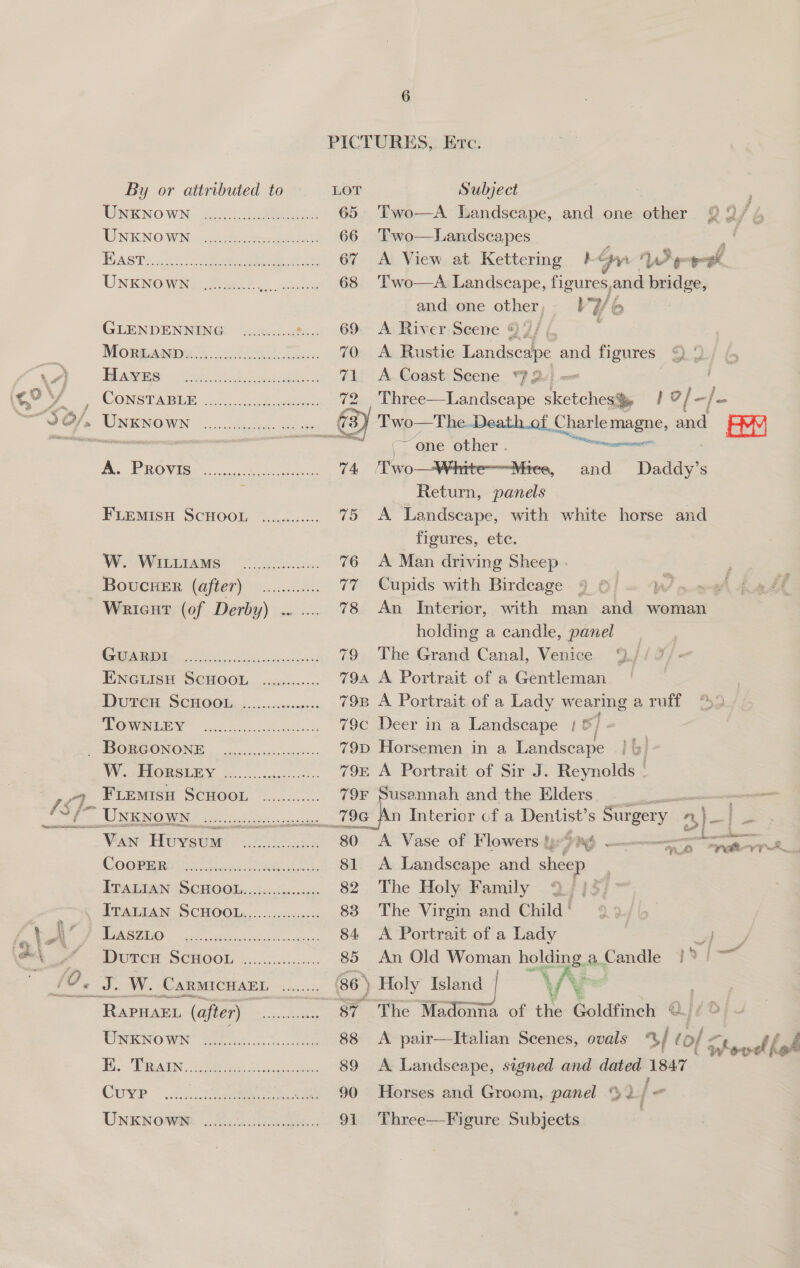 6
PICTURES, ETC.
By or attributed to LOT Subject
UNKNOWN ........ 65 Two—A Landscape, and one other
UNKNOWN ........ 66 Two—Landscapes
EAST ........ 67 A View at Kettering
UNKNOWN ........ 68 Two—A Landscape, figures and bridge,
and one other,
GLENDENNING ........ 69 A River Scene
MORLAND ........ 70 A Rustic Landscape and figures
HAYES ........ 71 A Coast Scene
CONSTABLE ........ 72 Three—Landscape sketches
UNKNOWN ........ 73 Two—The Death of Charlemagne, and
one other.
A. PROVIS ........ 74 Two—White Mice, and Daddy's
Return, panels
FLEMISH SCHOOL ........ 75 A Landscape, with white horse and
figures, etc.
W. WILLIAMS ........ 76 A Man driving Sheep.
BOUCHER (after) ........ 77 Cupids with Birdcage
WRIGHT (of Derby) ........ 78 An Interior, with man and woman
holding a candle, panel
GUARDI ........ 79 The Grand Canal, Venice
ENGLISH SCHOOL ........ 79A A Portrait of a Gentleman
DUTCH SCHOOL ........ 79B A Portrait of a Lady wearing a ruff
TOWNLEY ........ 79C Deer in a Landscape
BORGONONE ........ 79D Horsemen in a Landscape
W. HORSLEY ........ 79E A Portrait of Sir J. Reynolds
FLEMISH SCHOOL ........ 79F Susannah and the Elders
UNKNOWN ........ 79G An Interior of a Dentist's Surgery
VAN HUYSUM ........ 80 A Vase of Flowers
COOPER ........ 81 A Landscape and sheep
ITALIAN SCHOOL ........ 82 The Holy Family
ITALIAN SCHOOL ........ 83 The Virgin and Child
LASZLO ........ 84 A Portrait of a Lady
DUTCH SCHOOL ........ 85 An Old Woman holding a Candle
J. W. CARMICHAEL ........ 86 Holy Island
RAPHAEL (after) ........ 87 The Madonna of the Goldfinch
UNKNOWN ........ 88 A pair—Italian Scenes, ovals
E. TRAIN ........ 89 A Landscape, signed and dated 1847
CUYP ........ 90 Horses and Groom, panel
UNKNOWN ........ 91 Three—Figure Subjects